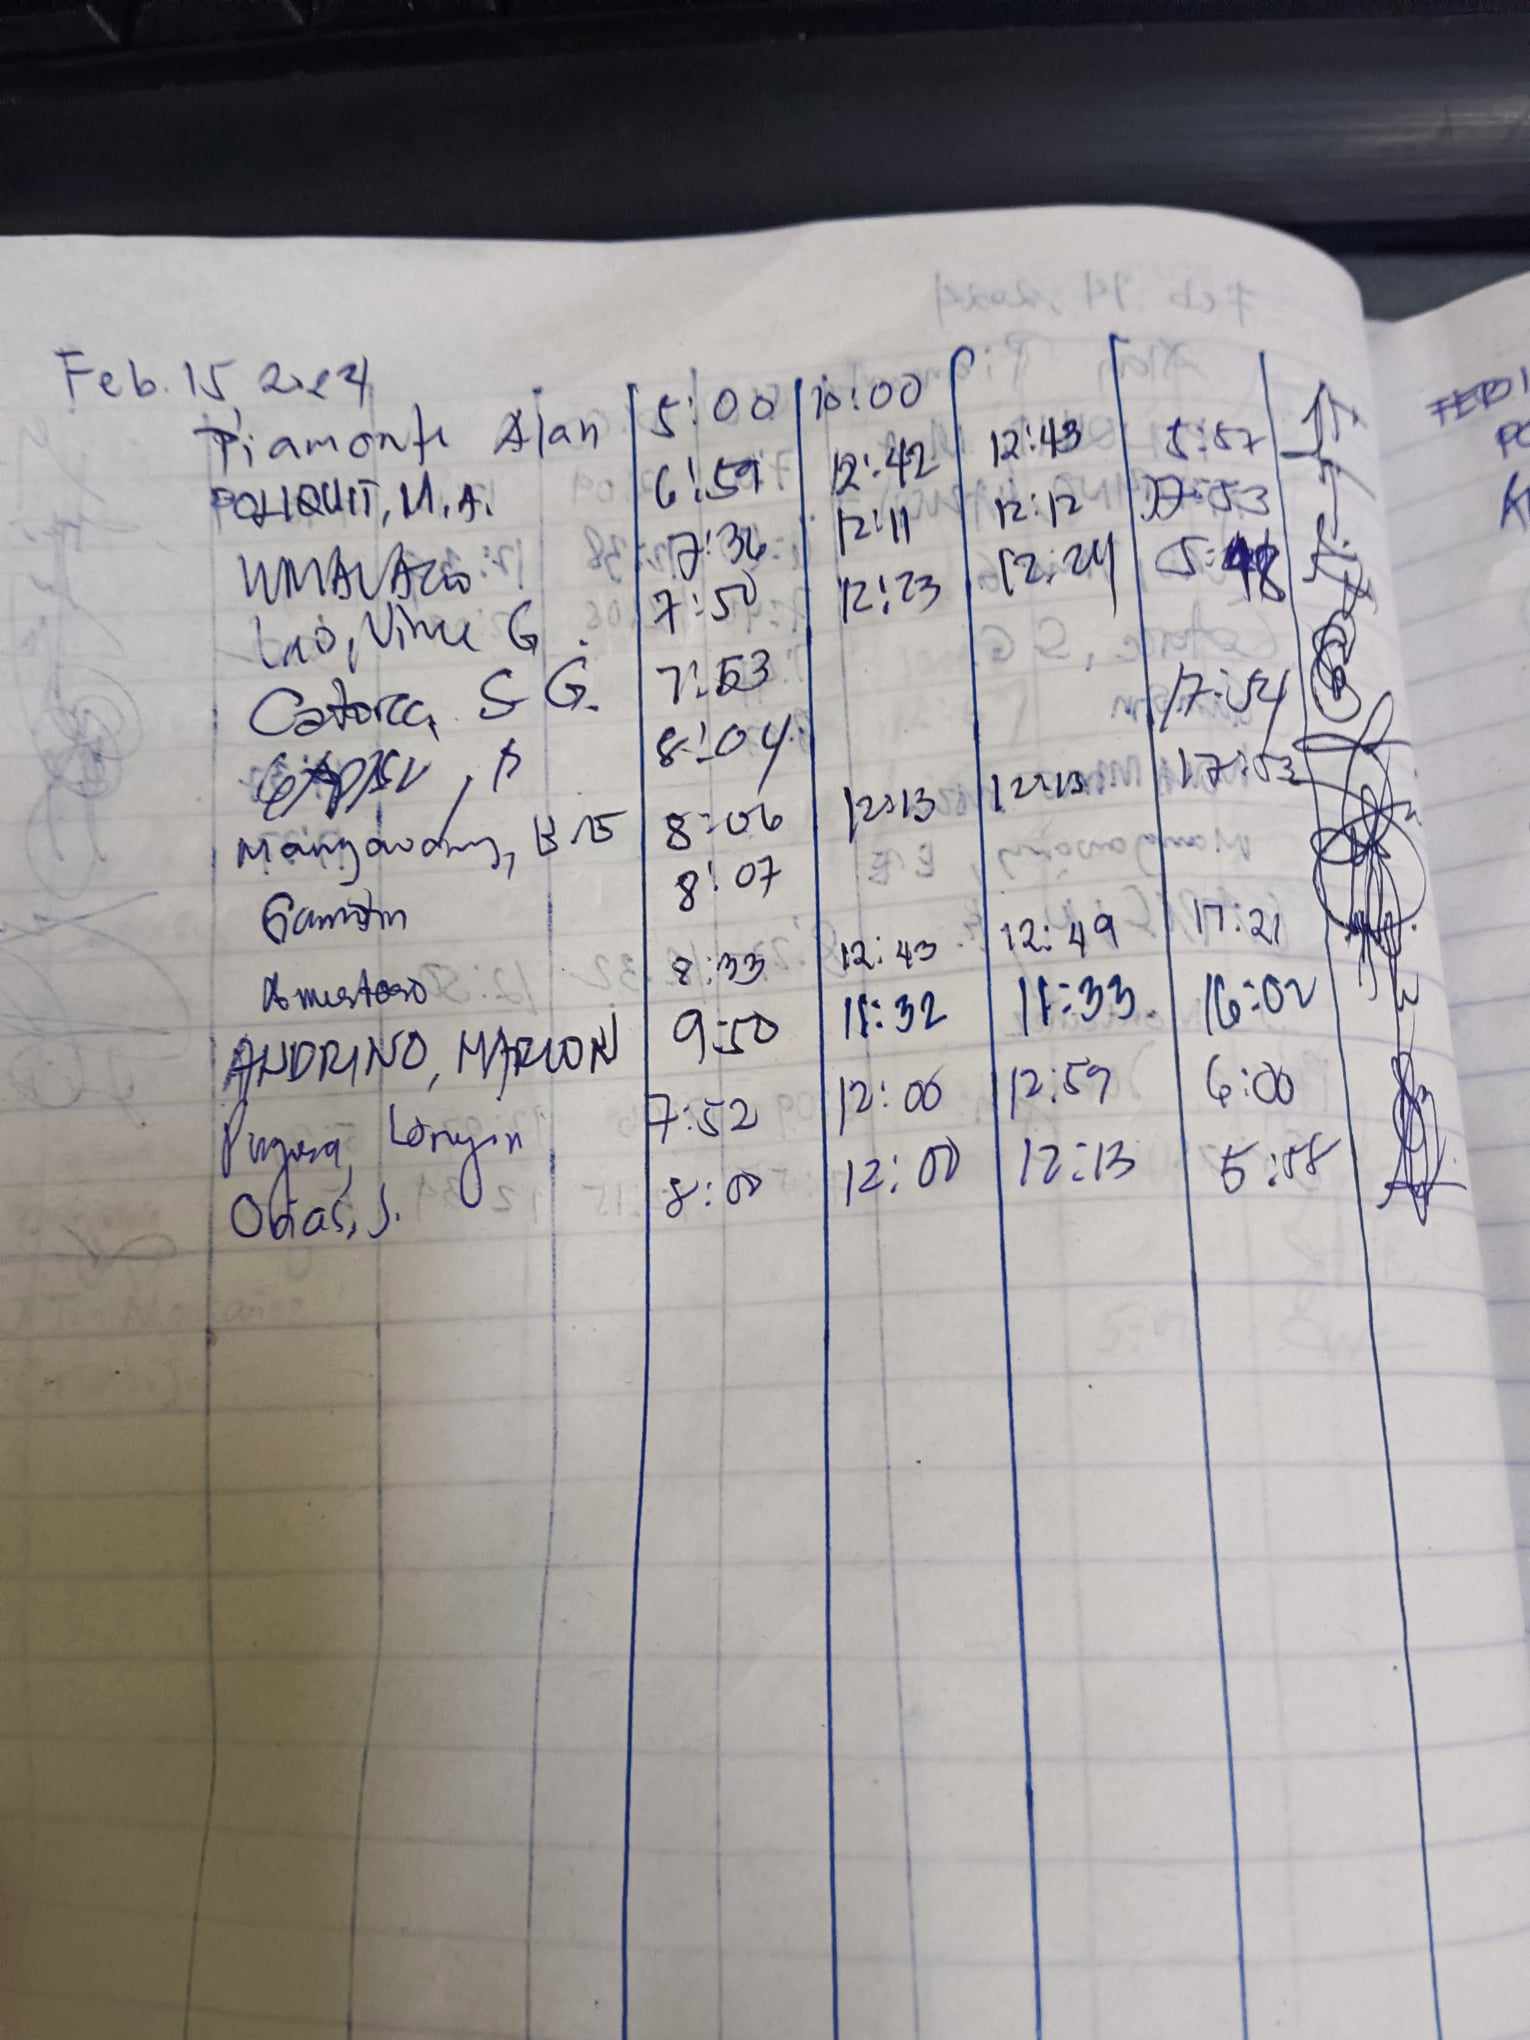 Feb. 15, 2024
Piamonte Alan 5:00 10:00
POLIQUIT, M.A. 6:59 12:42 12:43 5:57
7:36 12:11 12:12 17:53
Lao, Vince G. 7:50 12:23 12:24 5:48
Catorce, S G. 7:53
8:04 17:54
Mangawang, 8:06 12:13 12:13 17:53
8:07
8:33 12:43 12:49 17:21
ANDRINO, MARLON 9:50 11:32 11:33 16:02
7:52 12:00 12:59 6:00
Obias, J. 8:00 12:00 12:13 5:58